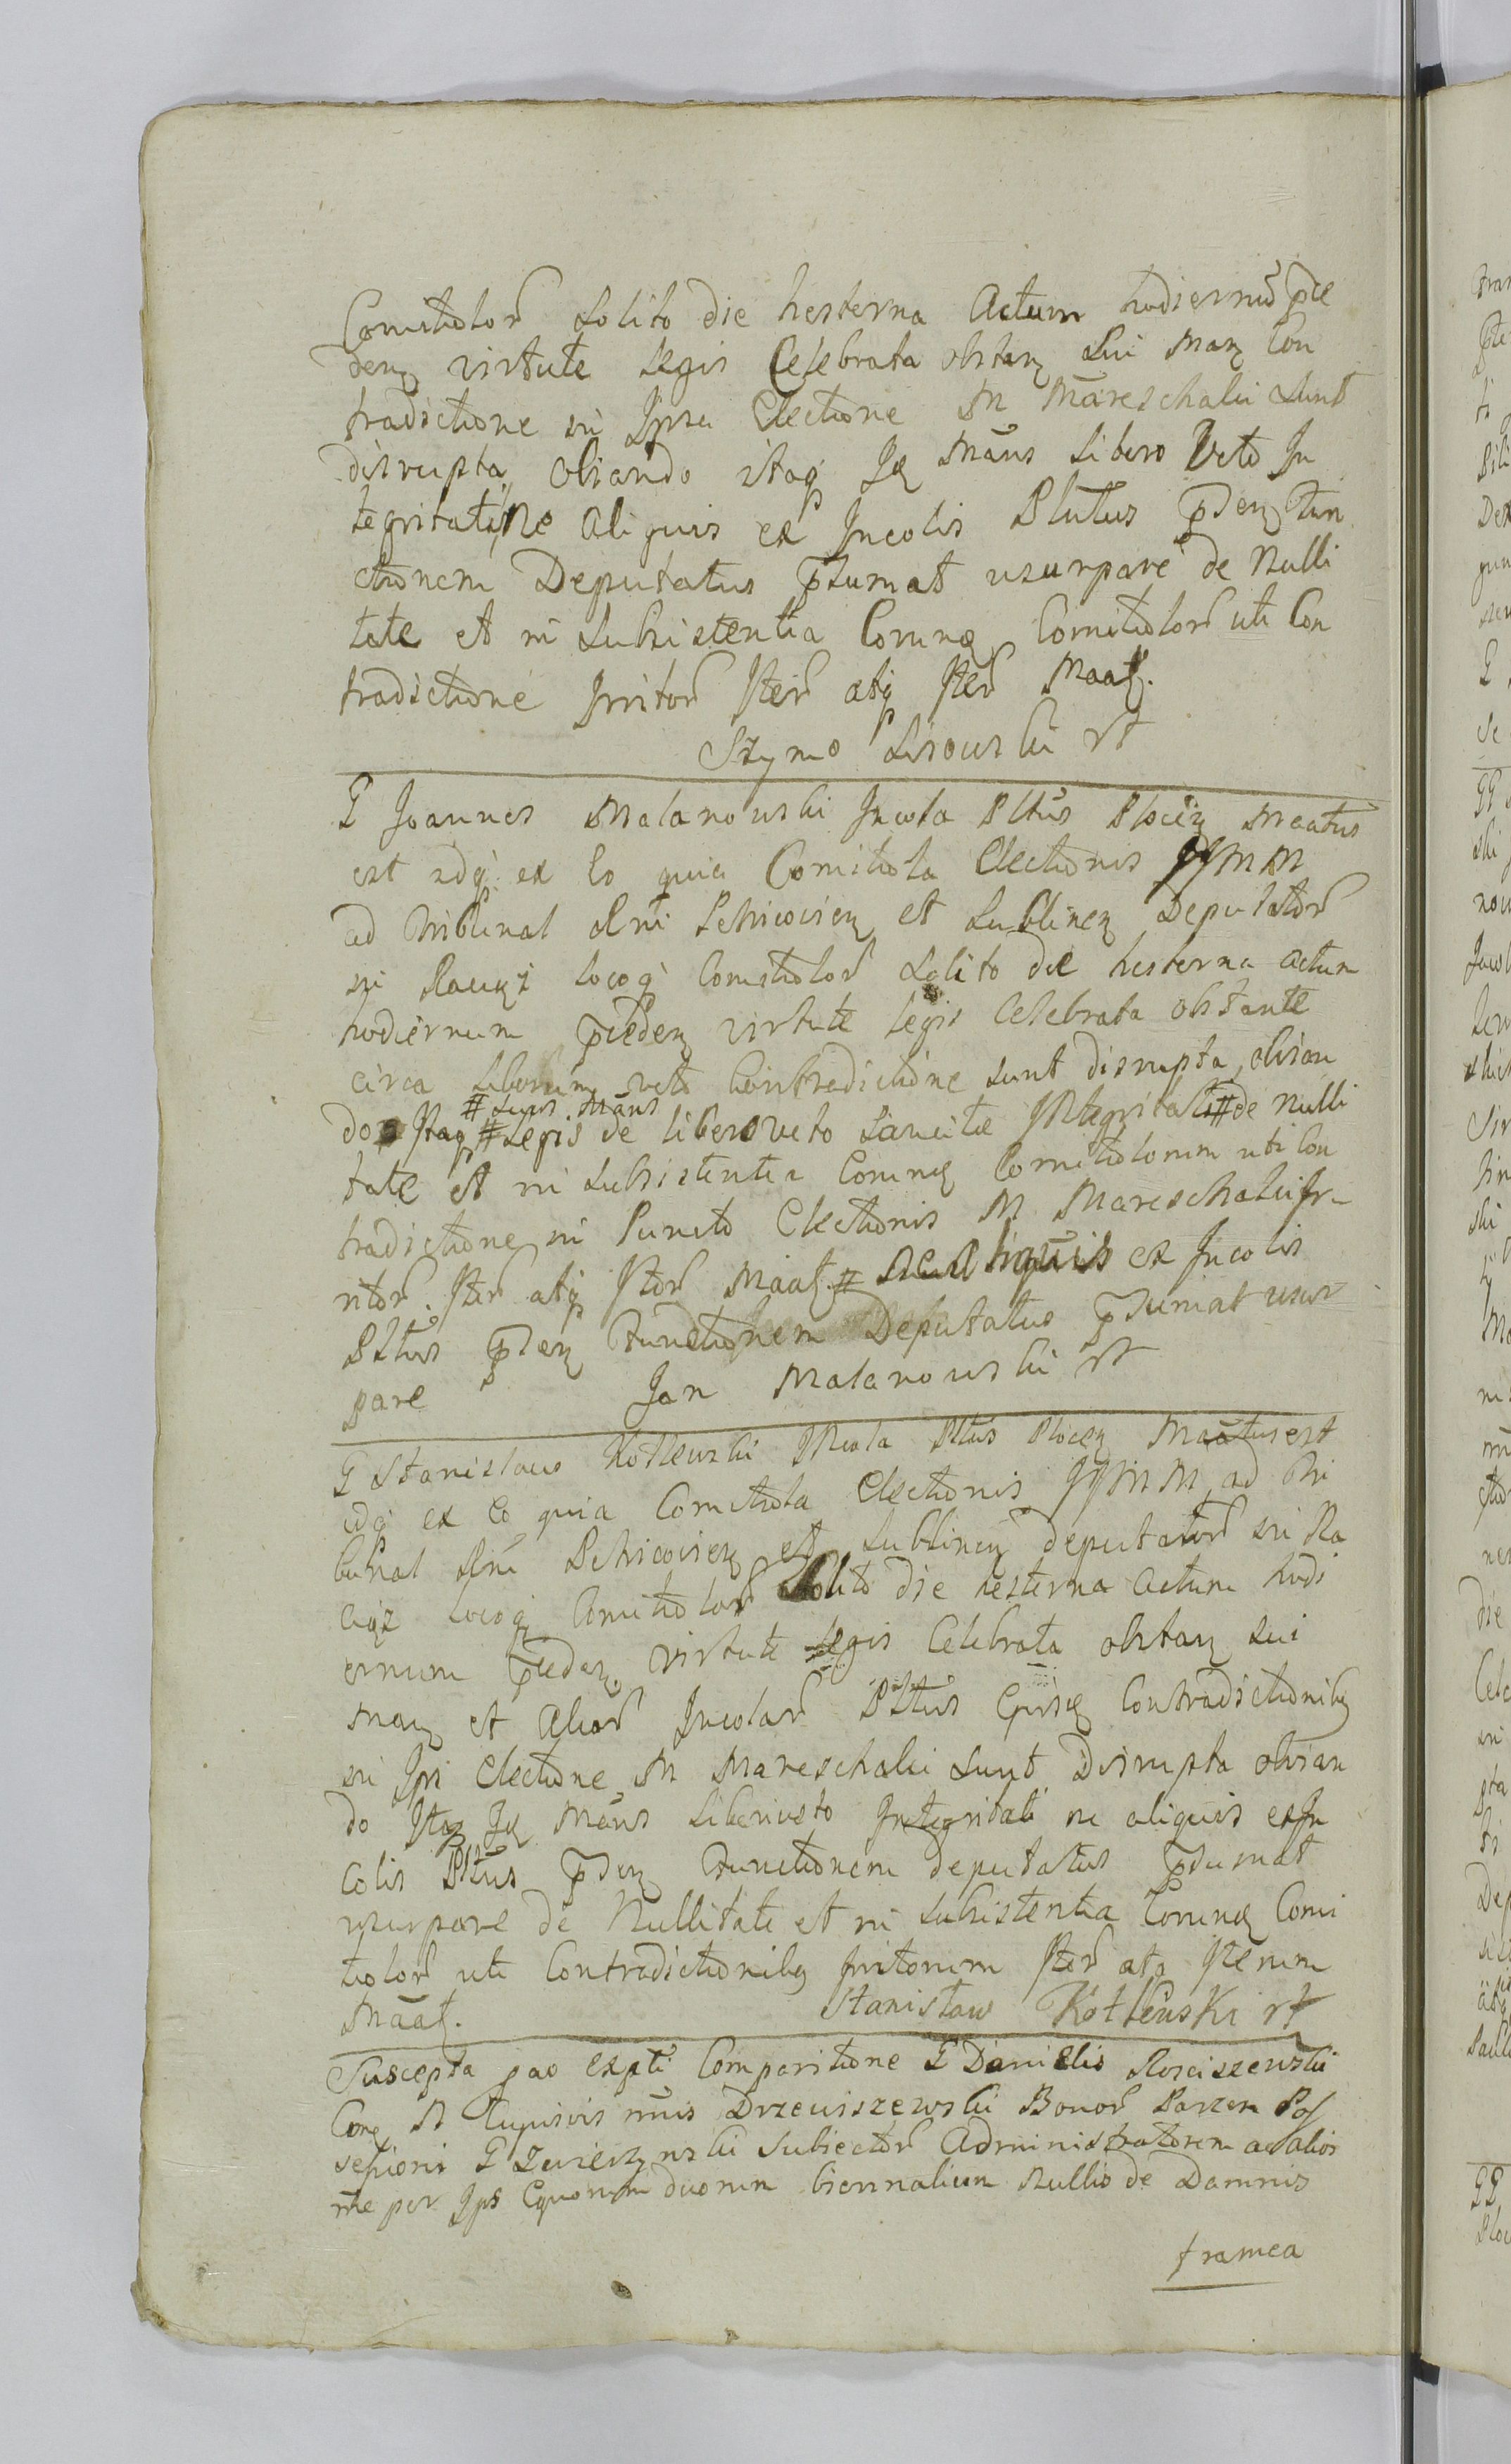 Comitiolor Solito die hesterna Actum hodiernũ p̃ce
den virtute Legis Celebrata obstan Sui Man Con
tradictione in Ipsa Electione M Mareschalci sunt
disrupta, obiando itaq Js Mãns Libero Veto In
tegritati, Ne Aliquis ex Incolis Pltutus p̃den Fun
ctionem Deputatus p̃sumat usurpare de Nulli
tate et in subsistentia Eorunq Comitiolor uti Con
tradictione Irritor Iter atq Iter Maat.
Szymo Lisowski rt
G Joannes Malanowski Incola Pltus Plocen Maatus
est idq ex Eo quia Comitiola Electionis JJMM
ad Tribunal Rni Petricovien et Lublinen Deputator
in Raciąż locoq Comitiolor Solito die hesterna actum
hodiernum p̃ceden virtute legis Celebrata obstante
circa Liberum veto Contradictione sunt disrupta, obian
# suus Mãns
do Itaq # Legis de libero veto Sancitæ Integritati # de Nulli
tate et in subsistentia Eorunq Comitiolorum uti Con
tradictione in Puncto Electionis M Mareschalci Ir
ritor. Iter atq Iter Maat. # Ne aliquis ex Incolis
Pltus p̃den Functionem Deputatus p̃sumat usur
pare Jan Malanowski rt
G Stanislaus Kotlewski Incola Pltus Plocen Maatus est
idq ex Eo quia Comitiola Electionis JJMM ad Tri
bunal Rni Petricovien et Lublinen deputator in Ra
ciąż locoq Comitiolor Solito die hesterna actum hodi
ernum p̃ceden virtute legis Celebrata obstan sui
Man et Alior Incolar Pltus Ejusq Contradictionibq
in Ipsi Electione M Mareschalci sunt Disrupta obian
do Itaq Js Mãns Liberi veto Integritati ne aliquis ex In
colis Pltus p̃den Functionem deputatus p̃sumat
usurpare de Nullitate et in subsistentia Eorunq Comi
tiolor uti Contradictionibq Irritorum Iter atq Iterum
Mãat. Stanisław Kotlewski rt
Suscepta pao expti Comparitione G Danielis Rosciszewski
Cone N Cupisvis mnis Drzewiszewski Bonor Parzen Pos
sessioris G Zwierzynski Subiector Administratorem ac alios
me per Ips Equorum duorum biennalium Nullis de Damnis
framea